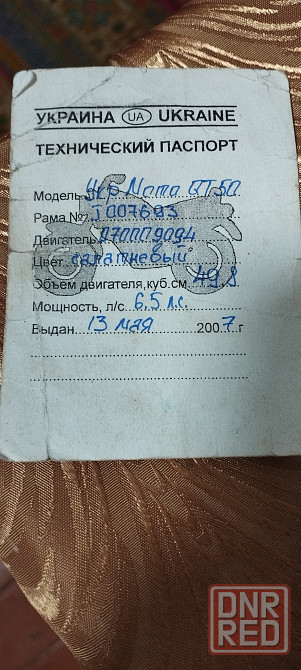 УКРАИНА UA UKRAINE
ТЕХНИЧЕСКИЙ ПАСПОРТ
Модель Yup Mama QT50
Рама № J007693
Двигатель 070009094
Цвет салатневый
Объем двигателя,куб.см. 49,8
Мощность, л/с 6,5 л.с.
Выдан 13 мая 2007 г
DNR
RED